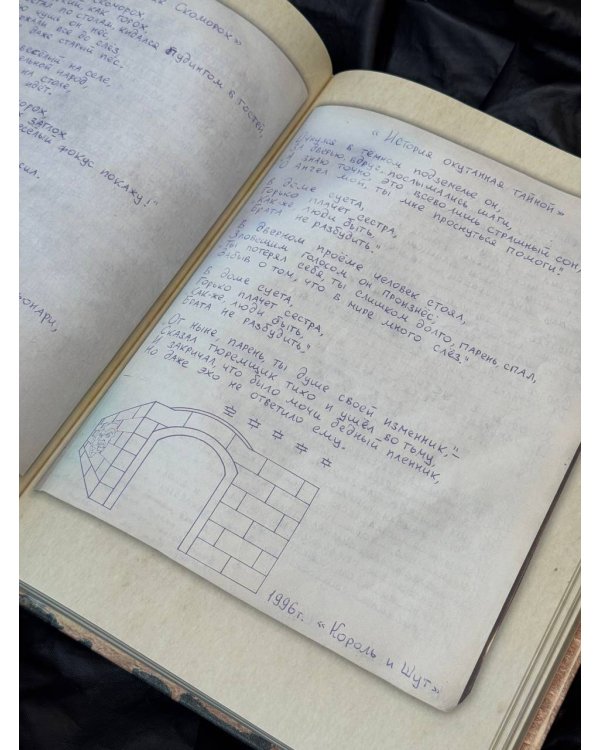 Скоморох»
как горох,
по столам, кидался пудингом в гостей,
он нёс
всё до слёз
даже старый пёс.
весёлый на селе,
народ,
на столе,
идёт.
заглох
весёлый фокус покажу!"
«История окутанная тайной»
в темном подземелье он,
дверью вдруг послышались шаги,
знаю точно, это всего лишь страшный сон,
О ангел мой, ты мне проснуться помоги."
В доме суета,
Горько плачет сестра,
Как же люди быть,
Брата не разбудить."
В дверном проёме человек стоял,
Зловещим голосом он произнёс:
"Ты потерял себя ты слишком долго, парень, спал,
Забыв о том, что в мире много слёз."
В доме суета,
Горько плачет сестра,
Как-же, люди быть,
Брата не разбудить,"
"От ныне, парень, ты душе своей изменник,"-
Сказал тюремщик тихо и ушёл во тьму,
И закричал, что было мочи бедный пленник,
Но даже эхо не ответило ему.
1996г. «Король и Шут»